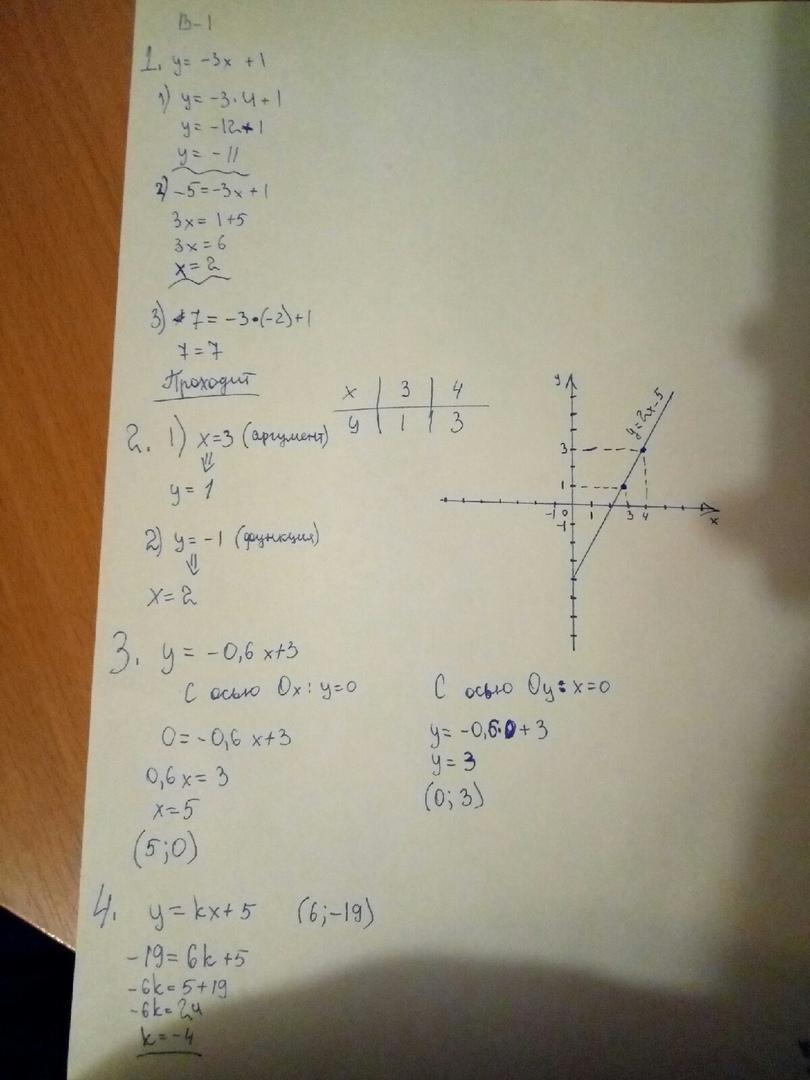 В-1
1. y = -3x + 1
1) y = -3·4+1
y = -12+1
y = -11
2) -5 = -3x+1
3x = 1+5
3x = 6
x = 2
3) 7 = -3·(-2)+1
7 = 7
Проходит
x | 3 | 4
y | 1 | 3
2. 1) x=3 (аргумент)
⇓
y = 1
2) y = -1 (функция)
⇓
x = 2
y
y=2x-5
3
1
-1 0 1 3 4
x
-1
3. y = -0,6x+3
С осью Ox: y=0
0 = -0,6x+3
0,6x = 3
x=5
(5;0)
С осью Oy: x=0
y = -0,6·0+3
y = 3
(0;3)
4. y = kx+5 (6;-19)
-19 = 6k+5
-6k = 5+19
-6k = 24
k = -4